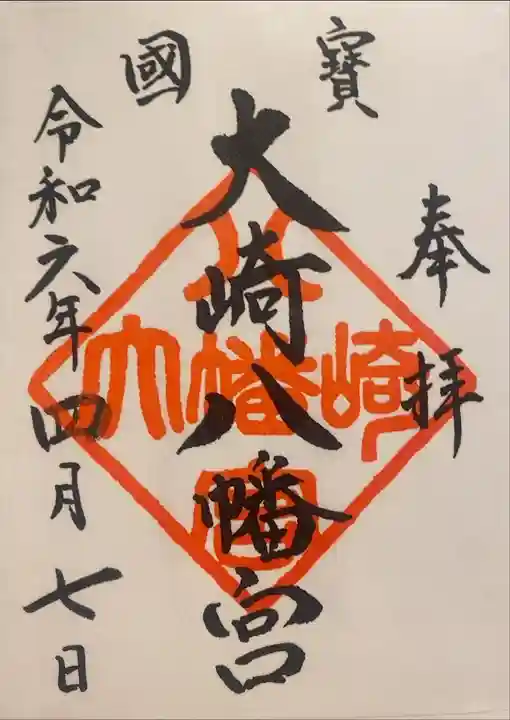 國寳
奉拝
大崎八幡宮
令和六年四月七日
大崎八幡宮